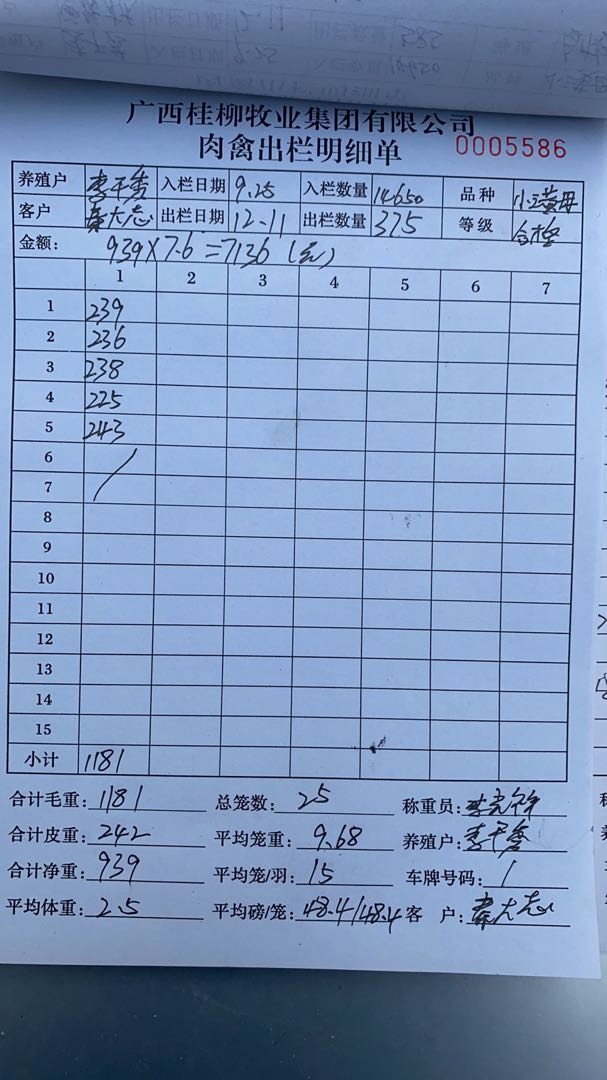 广西桂柳牧业集团有限公司
肉禽出栏明细单 0005586
养殖户 李干秀 入栏日期 9.25 入栏数量 14650 品种
客户 韦大志 出栏日期 12.11 出栏数量 375 等级 合格
金额: 939×7.6=7136(元)
1 2 3 4 5 6 7
1 239
2 236
3 238
4 225
5 243
6
7
8
9
10
11
12
13
14
15
小计 1181
合计毛重: 1181 总笼数: 25 称重员:
合计皮重: 242 平均笼重: 9.68 养殖户: 李干秀
合计净重: 939 平均笼/羽: 15 车牌号码: /
平均体重: 2.5 平均磅/笼: 48.4/48.4 客 户: 韦大志